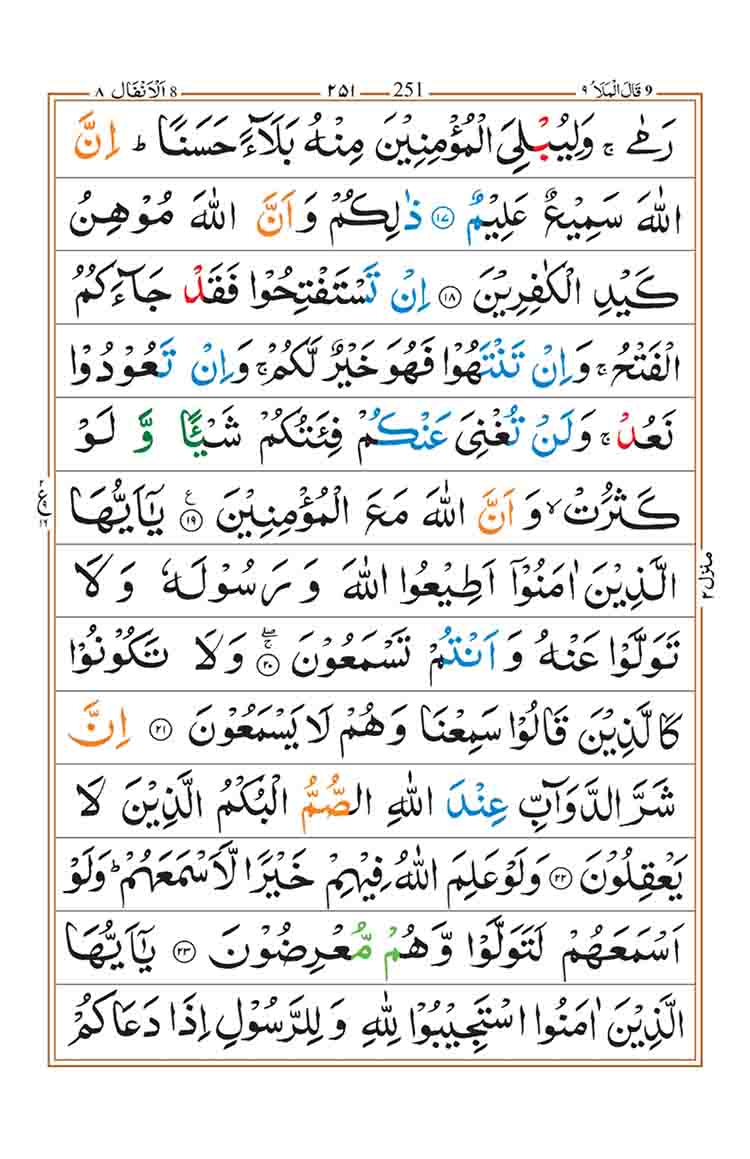 9 قَالَ الْمَلَاُ ٩ 251 ٢٥١ 8 اَلْاَنْفَال ٨
رَمٰى ۚ وَلِيُبْلِيَ الْمُؤْمِنِيْنَ مِنْهُ بَلَآءً حَسَنًا ؕ اِنَّ
اللّٰهَ سَمِيْعٌ عَلِيْمٌ ۝١٧ ذٰلِكُمْ وَ اَنَّ اللّٰهَ مُوْهِنُ
كَيْدِ الْكٰفِرِيْنَ ۝١٨ اِنْ تَسْتَفْتِحُوْا فَقَدْ جَآءَكُمُ
الْفَتْحُ ۚ وَ اِنْ تَنْتَهُوْا فَهُوَ خَيْرٌ لَّكُمْ ۚ وَ اِنْ تَعُوْدُوْا
نَعُدْ ۚ وَ لَنْ تُغْنِيَ عَنْكُمْ فِئَتُكُمْ شَيْـًٔا وَّ لَوْ
كَثُرَتْ ۙ وَ اَنَّ اللّٰهَ مَعَ الْمُؤْمِنِيْنَ ۝١٩ ع يٰۤاَيُّهَا
الَّذِيْنَ اٰمَنُوْۤا اَطِيْعُوا اللّٰهَ وَ رَسُوْلَهٗ وَ لَا
تَوَلَّوْا عَنْهُ وَ اَنْتُمْ تَسْمَعُوْنَ ۝٢٠ وَ لَا تَكُوْنُوْا
كَالَّذِيْنَ قَالُوْا سَمِعْنَا وَ هُمْ لَا يَسْمَعُوْنَ ۝٢١ اِنَّ
شَرَّ الدَّوَآبِّ عِنْدَ اللّٰهِ الصُّمُّ الْبُكْمُ الَّذِيْنَ لَا
يَعْقِلُوْنَ ۝٢٢ وَ لَوْ عَلِمَ اللّٰهُ فِيْهِمْ خَيْرًا لَّاَسْمَعَهُمْ ؕ وَ لَوْ
اَسْمَعَهُمْ لَتَوَلَّوْا وَّ هُمْ مُّعْرِضُوْنَ ۝٢٣ يٰۤاَيُّهَا
الَّذِيْنَ اٰمَنُوا اسْتَجِيْبُوْا لِلّٰهِ وَ لِلرَّسُوْلِ اِذَا دَعَاكُمْ
منزل ٢